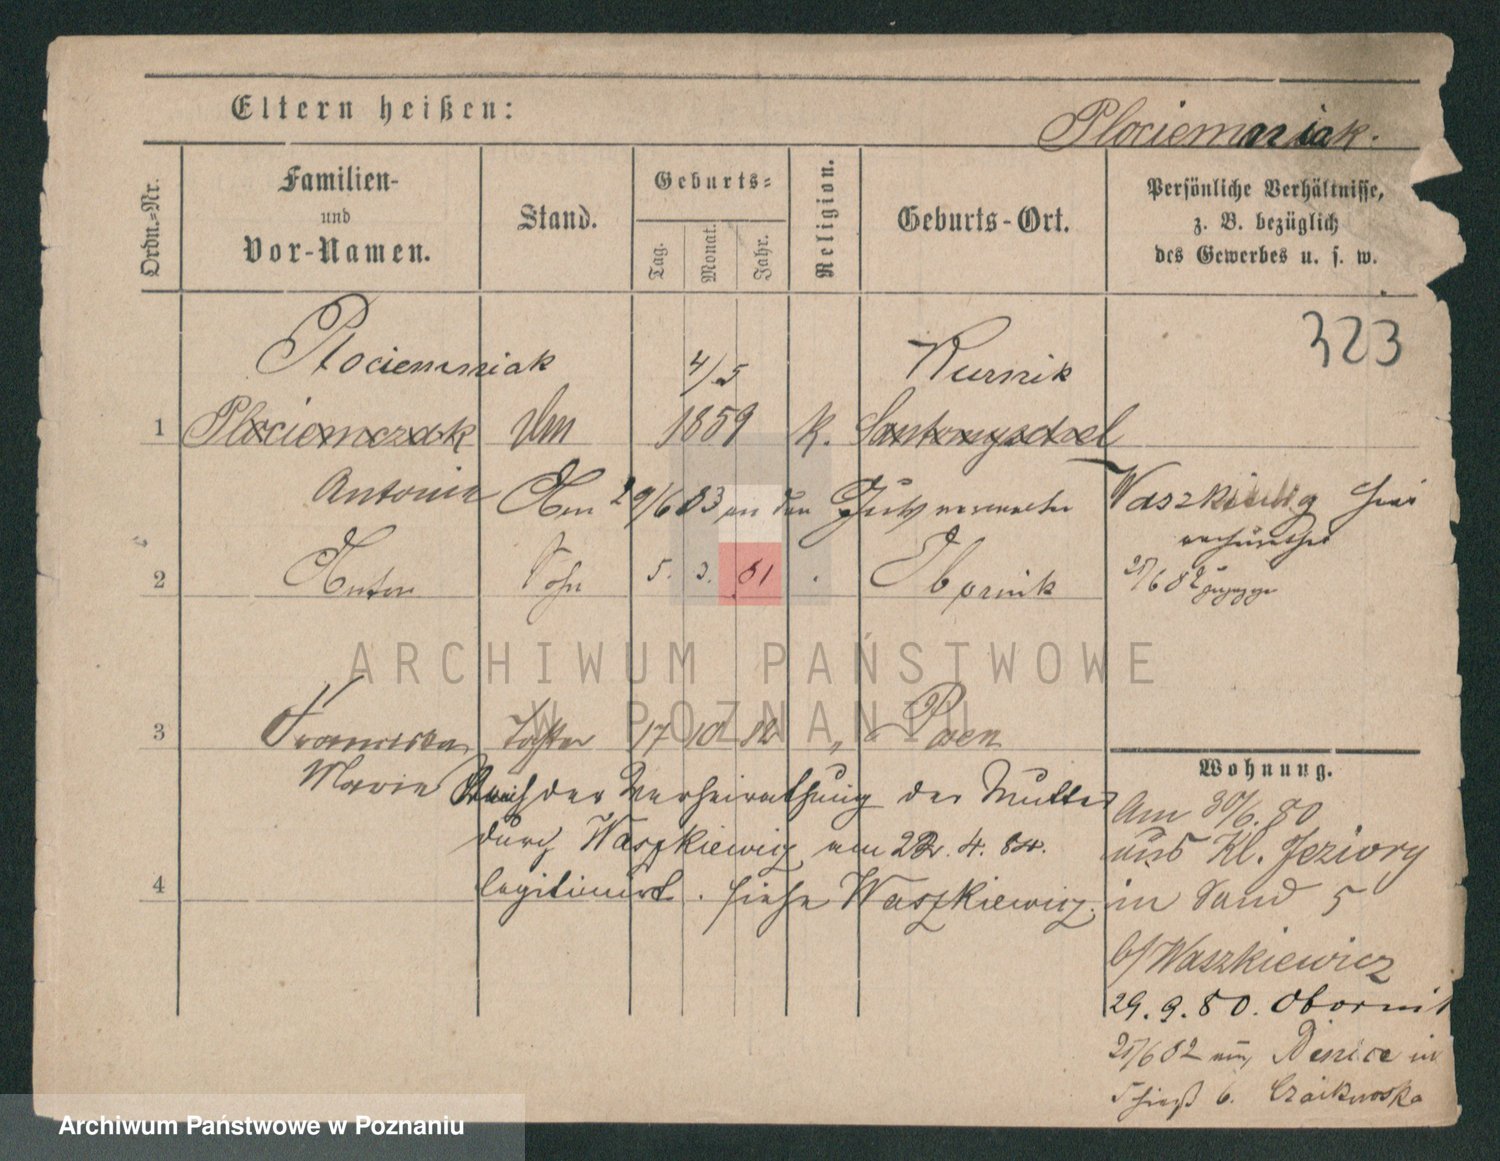 Eltern heißen:
Plociemniak.
Ordn.=Nr.
Familien-
und
Vor-Namen.
Stand.
Geburts=
Tag.
Monat.
Jahr.
Religion.
Geburts-Ort.
Persönliche Verhältnisse,
z. B. bezüglich
des Gewerbes u. s. w.
323
Plociemniak 4/5 Kurnik
1 Plociemczak 1859 K. Santomyschel
Antonie 29/6 83 an den
2 Anton Sohn 5. 3. 81 Obornik 25/6 82
3 Franciska Tochter 17 10 82 " Posen
Marie
Nach der Verheirathung der Mutter
durch Waszkiewicz am 22. 4. 84.
legitimirt. siehe Waszkiewicz.
4
Wohnung.
Am 30/6. 80
aus Kl. Jeziory
in Sand 5
b/ Waszkiewicz
29. 9. 80. Obornik
25/6 82 in
6. Czaikowska
ARCHIWUM PAŃSTWOWE
W POZNANIU
Archiwum Państwowe w Poznaniu